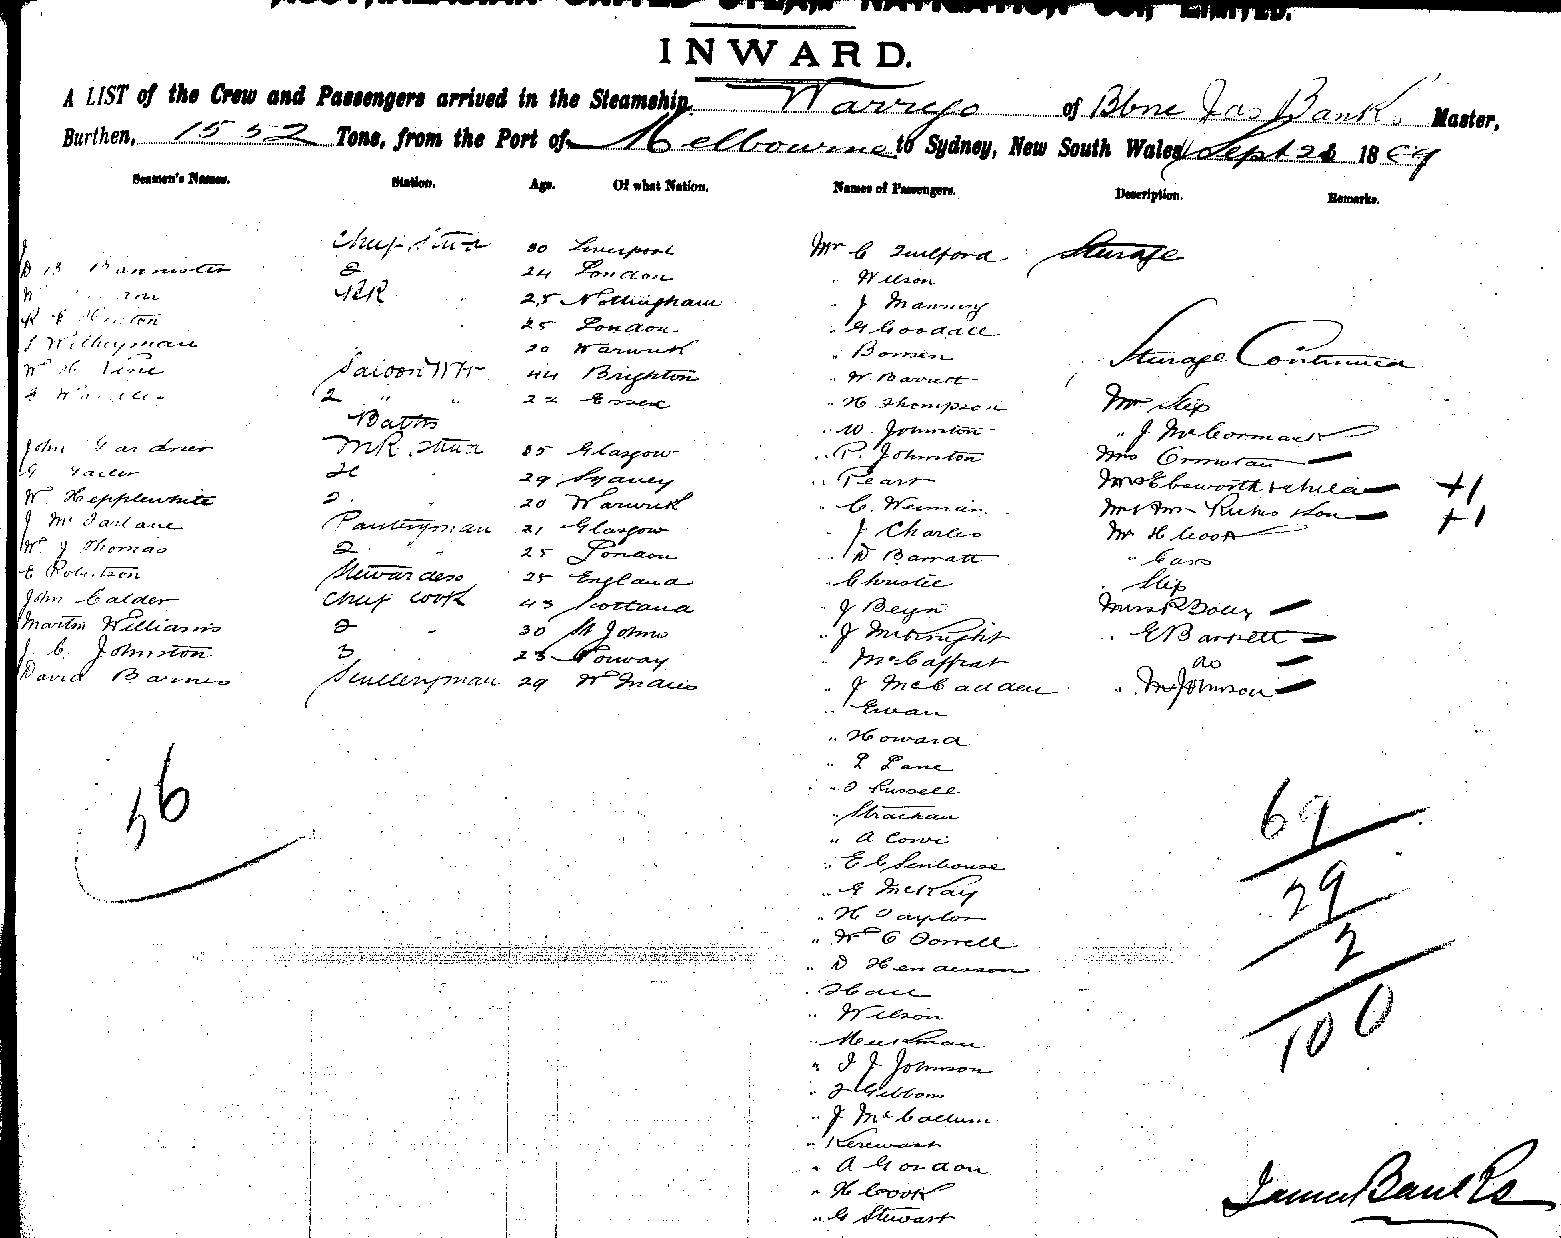 AUSTRALASIAN UNITED STEAM NAVIGATION COY, LIMITED.
INWARD.
A LIST of the Crew and Passengers arrived in the Steamship Warrego of Bbne Jas Banks Master,
Burthen, 1552 Tons, from the Port of Melbourne to Sydney, New South Wales, Sept 1889
Seamen's Names. Station. Age. Of what Nation. Names of Passengers. Description. Remarks.
Chief Stwd 30 Liverpool Mr C Guilford Steerage
D B Bannister 2 24 London " Wilson
25 Nottingham " J Manning
Huston 25 London " G Goodall
Witheyman 20 Warwick " Bowen
W H Vine Saloon Wtr 44 Brighton " W Barrett Steerage Continued
2 " " 22 Essex " H Thompson Mr
Baths " W. Johnston " J McCormack
John Gardner Stwd 35 Glasgow " P. Johnston Mrs Ormiston
29 Sydney " Peart Mrs Ebsworth & child +1
W Hepplewhite 2 " 20 Warwick " C. Weiman Mr & Mrs +1
J McFarlane Pantryman 21 Glasgow " J Charles Mr H Cook
W J Thomas 2 25 London " D Barratt "
E Robertson Stewardess 25 England " Christie
John Calder Chief Cook 43 Scotland " J Beyn Miss
Martin Williams 2 " 30 St Johns " J McKnight " E Barrett
J. C. Johnston 3 23 Norway " McCaffrat do
David Barnes Sculleryman 29 W Indies " J McCadden " M Johnson
" Ewan
" Howard
" Lane
" Russell
" Strachan
" A
" E C Senhouse
" G McKay
" H Taylor
" W C Dorrell
" D Henderson
" Hall
" Wilson
" J J Johnson
" Gibbons
" J McCallum
" A Gordon
" H Cook
" G Stewart
56
69
29
2
100
James Banks